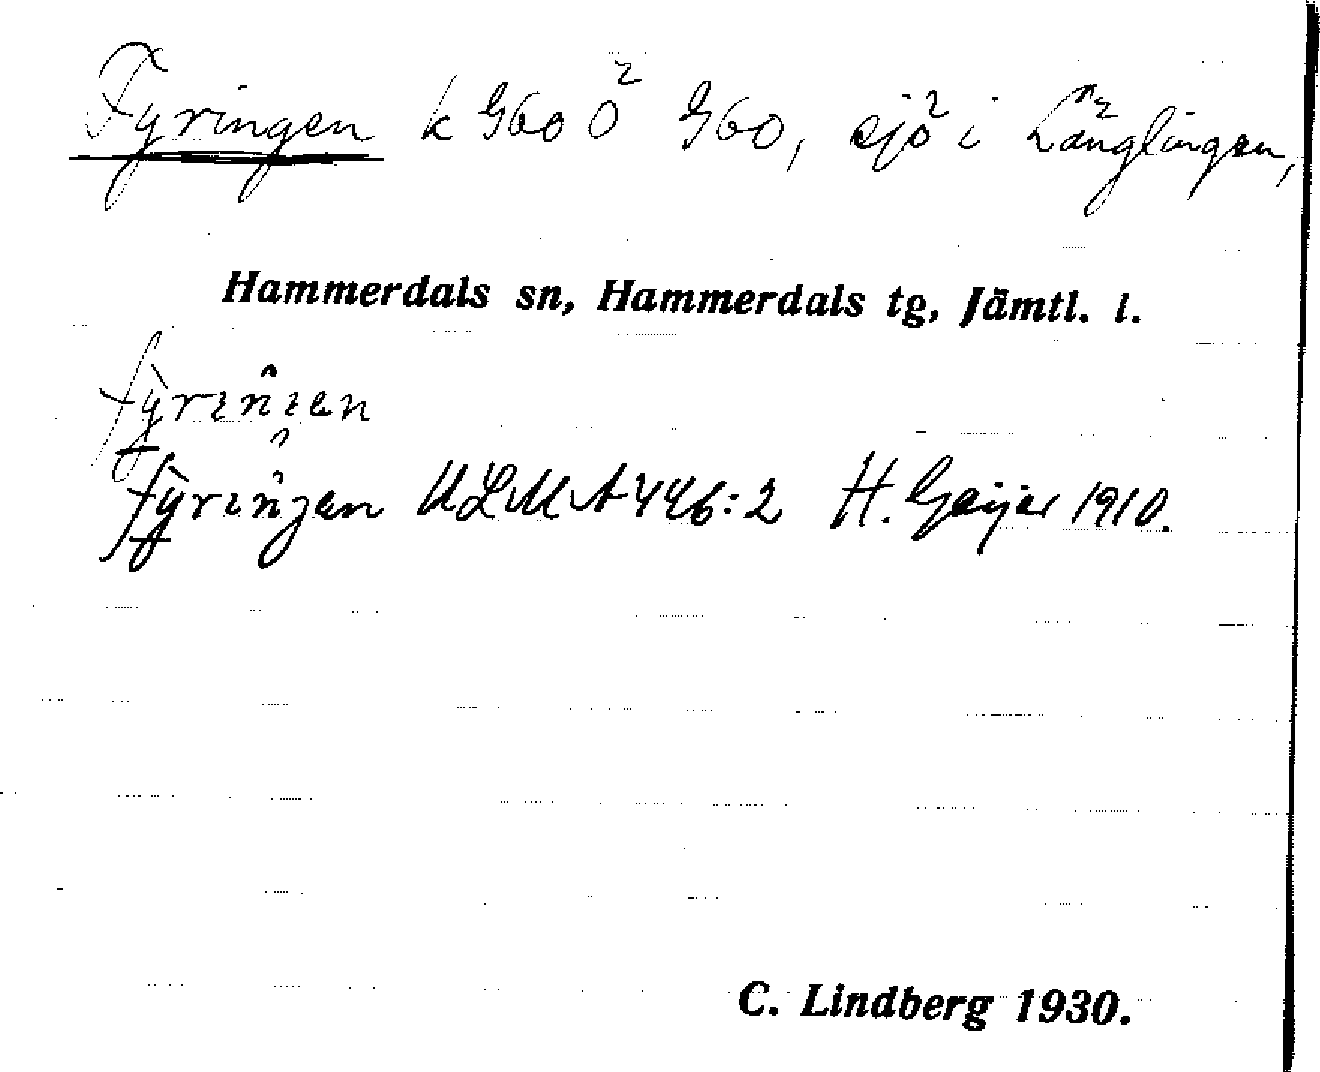 Fyringen k G60 Ö G60, sjö i Långlingen,
Hammerdals sn, Hammerdals tg, Jämtl. l.
fyriŋ̂ɩen
fyriŋ̂ʒen ULMA 446:2 H. Geijer 1910.
C. Lindberg 1930.